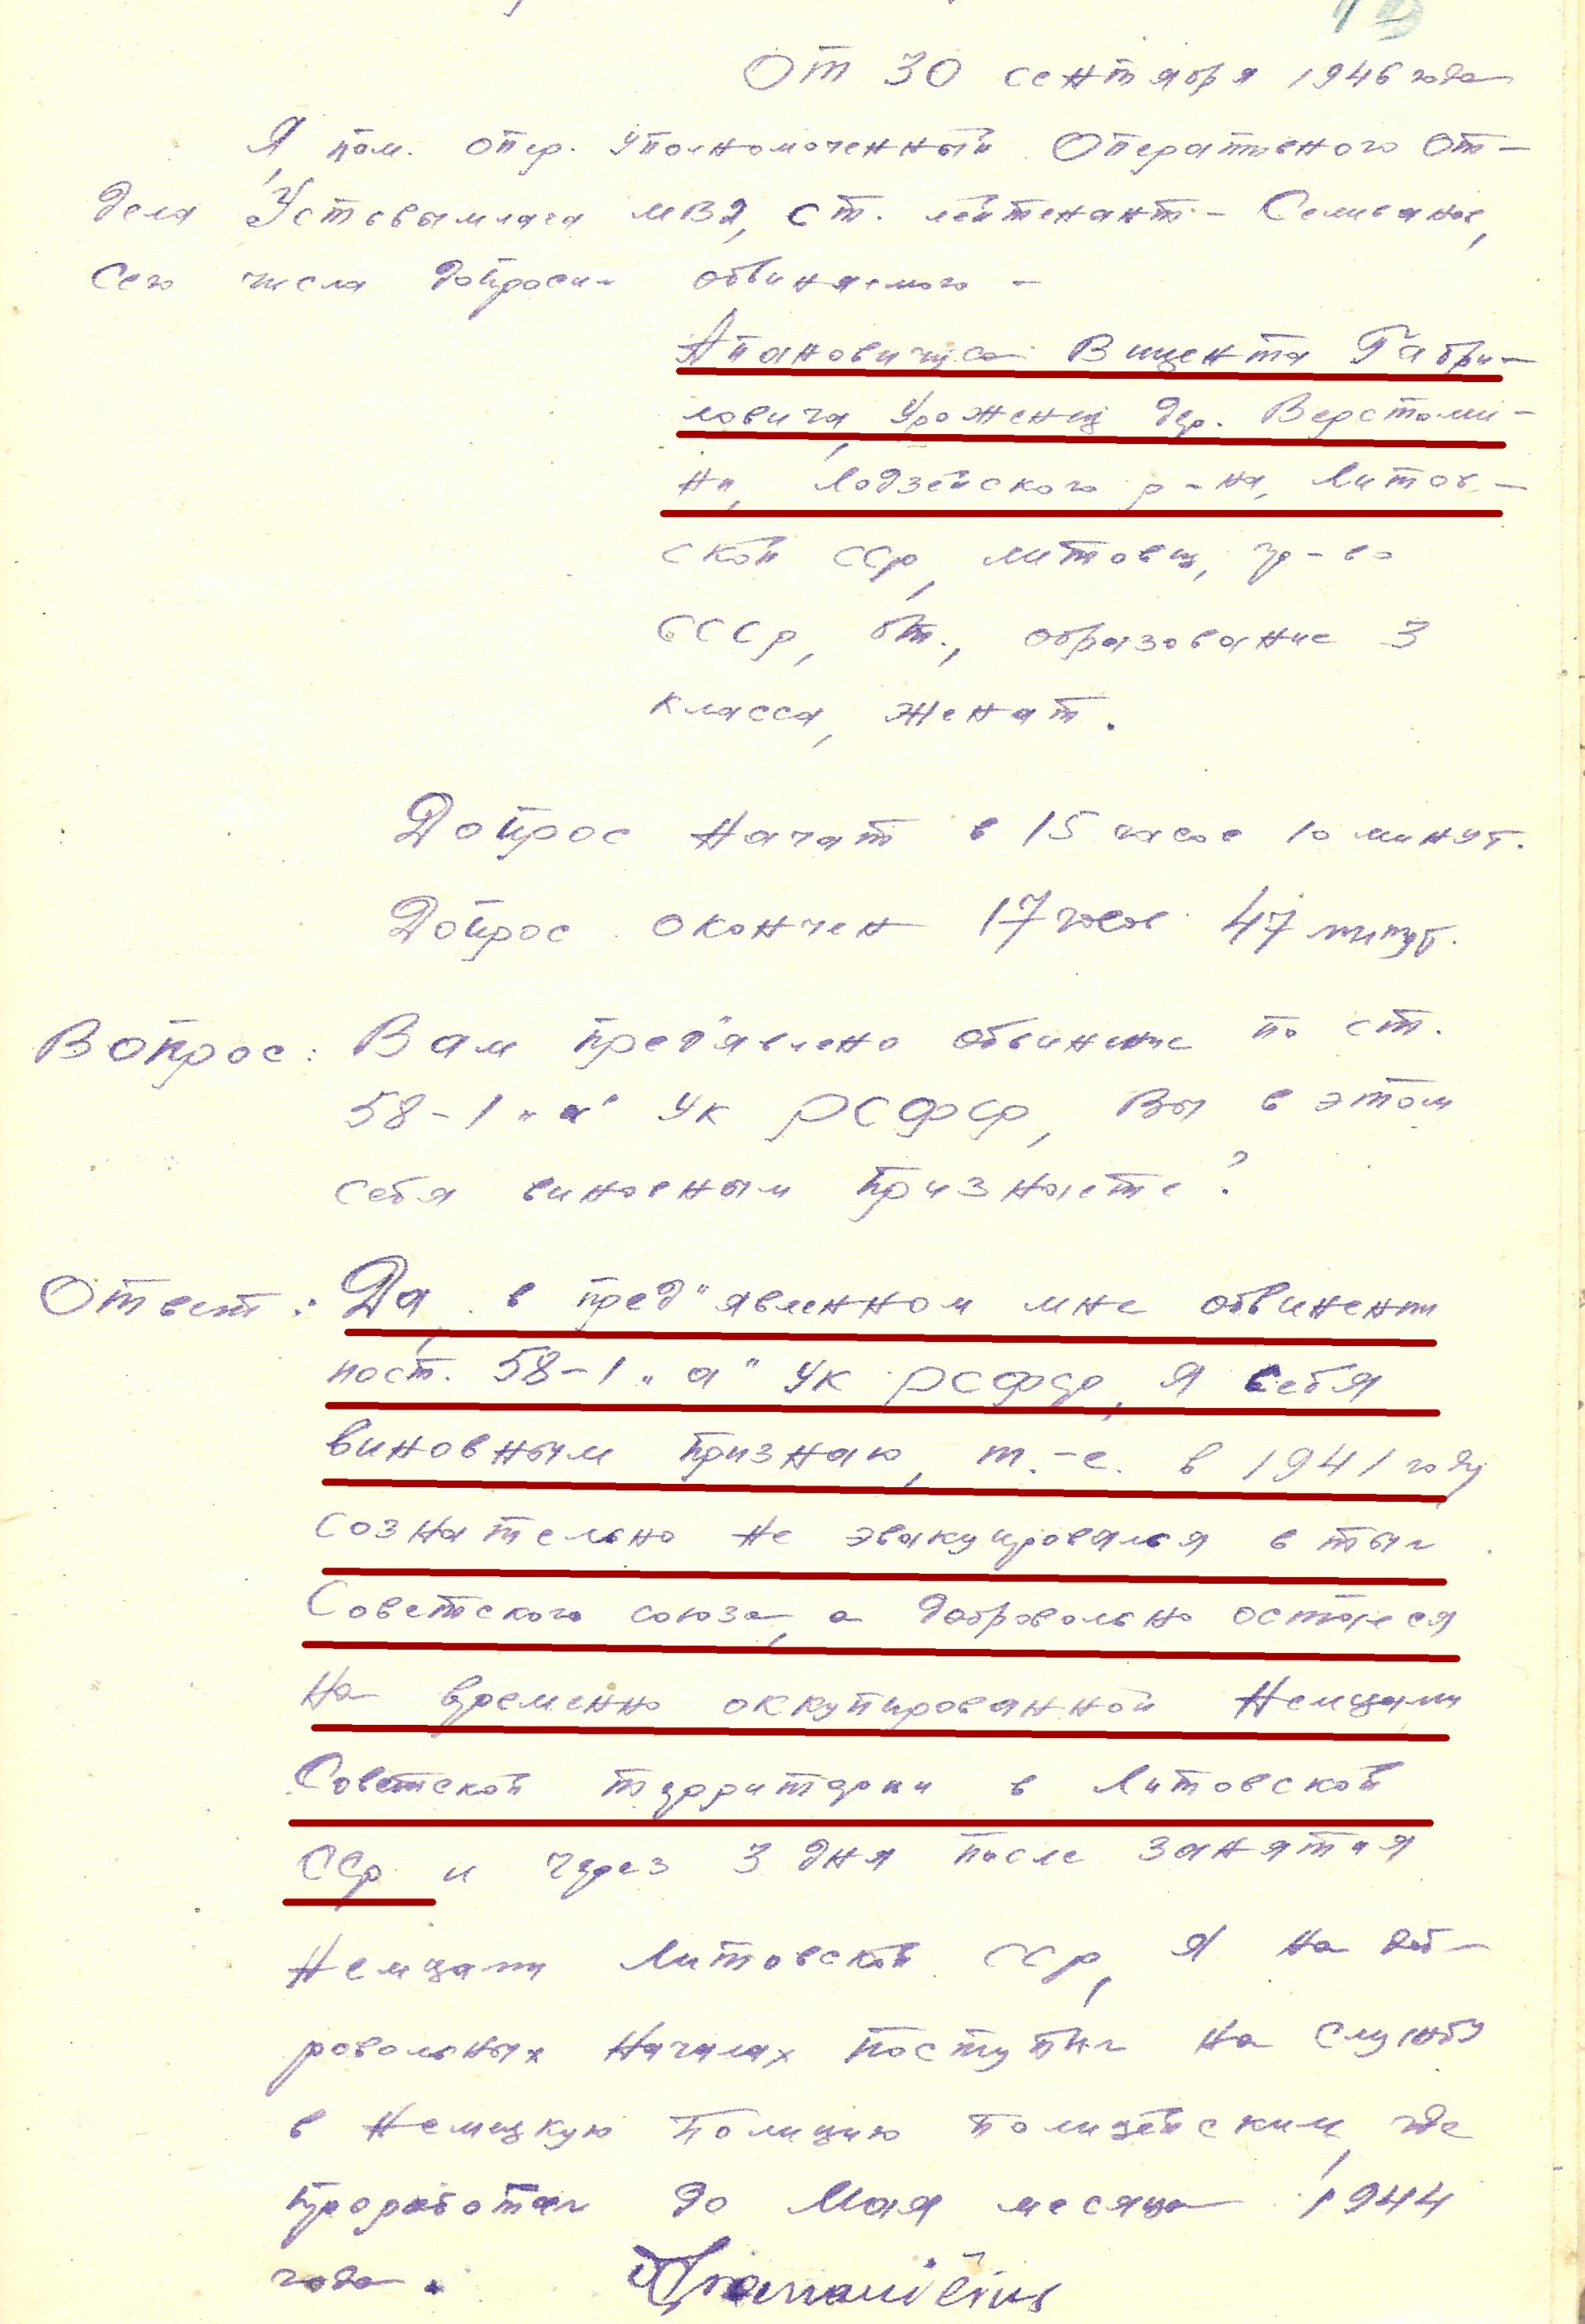 От 30 сентября 1946 года
Я, пом. опер. уполномоченный Оперативного От-
дела Устьвымлага МВД, ст. лейтенант - Селиванов,
сего числа допросил обвиняемого -
Апановичуса Вицента Габри-
ловича, уроженец дер. Верстоми-
ни, Лодзейского р-на, Литов-
ской ССР, литовец, гр-во
СССР, б/п., образование 3
класса, женат.
Допрос начат в 15 часов 10 минут.
Допрос окончен 17 часов 47 минут.
Вопрос: Вам пред"явлено обвинение по ст.
58-1 "а" УК РСФСР, Вы в этом
себя виновным признаете?
Ответ: Да, в пред"явленном мне обвинении
по ст. 58-1 "а" УК РСФСР, я себя
виновным признаю, т.-е. в 1941 году
сознательно не эвакуировался в тыл
Советского союза, а добровольно остался
на временно оккупированной немцами
Советской территории в Литовской
ССР и через 3 дня после занятия
немцами Литовской ССР, я на доб-
ровольных началах поступил на службу
в немецкую полицию полицейским, где
проработал до мая месяца 1944
года.